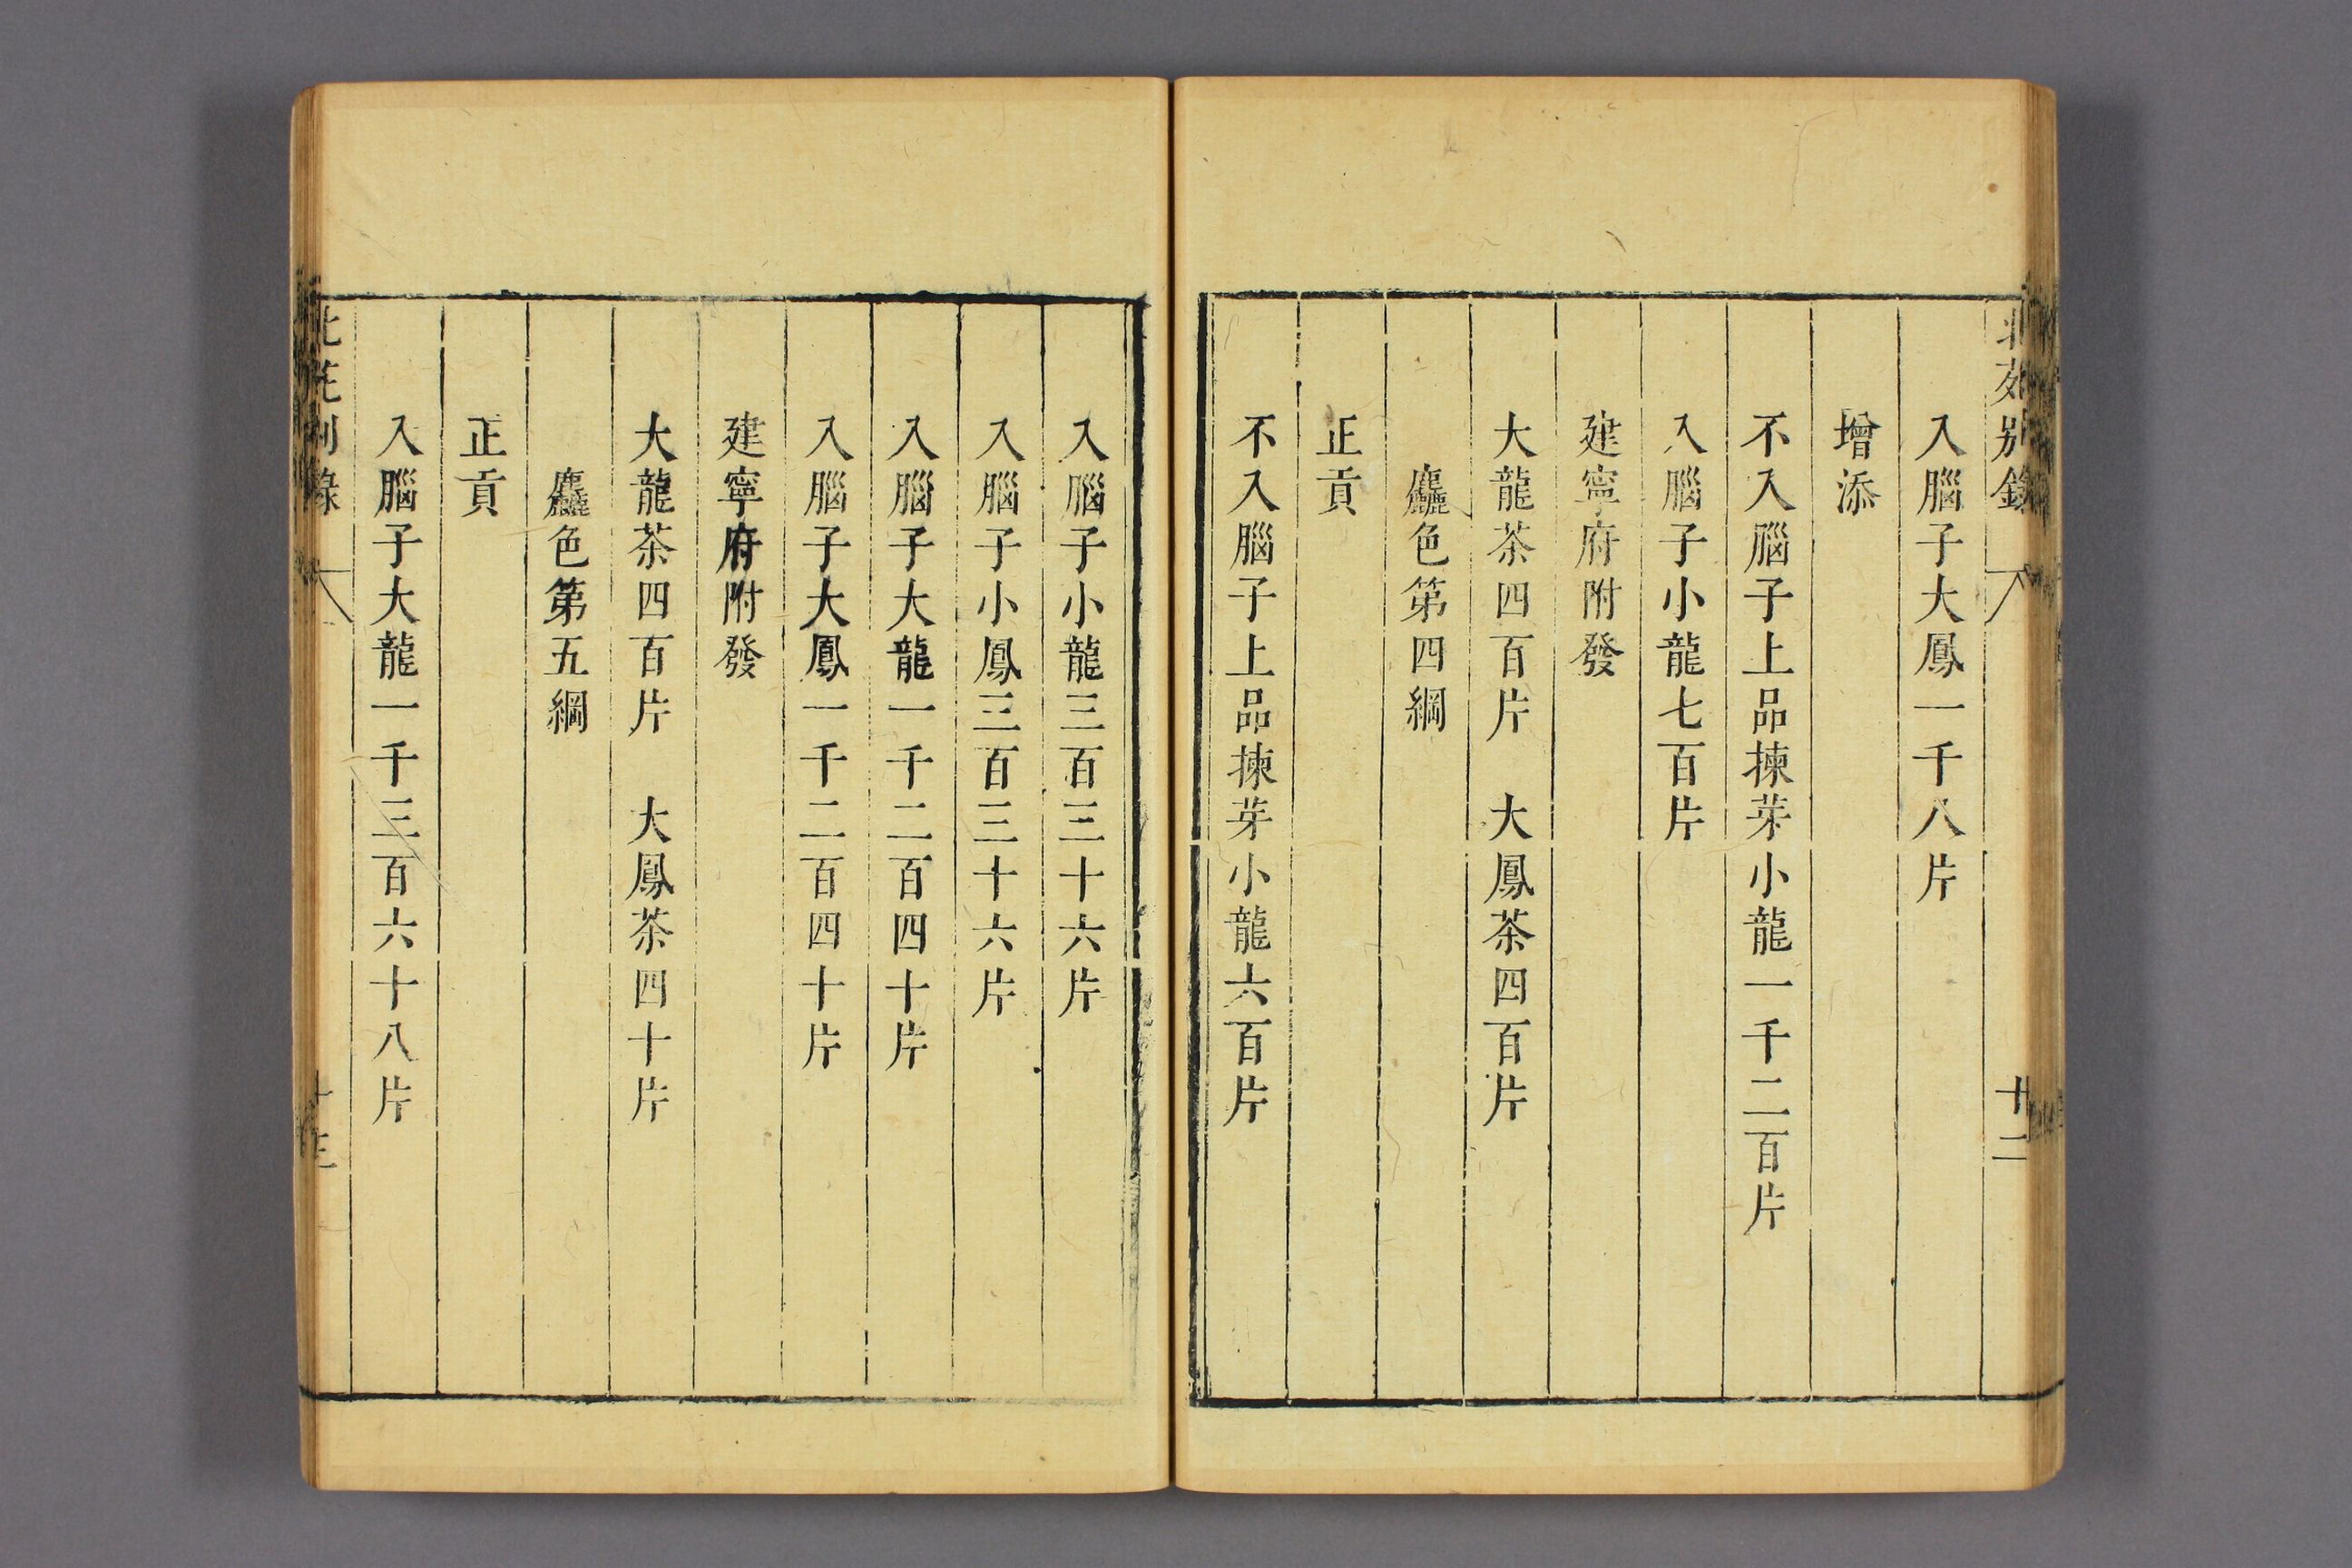 北苑別錄
十二
入腦子大鳳一千八片
增添
不入腦子上品揀芽小龍一千二百片
入腦子小龍七百片
建寧府附發
大龍茶四百片　大鳳茶四百片
麤色第四綱
正貢
不入腦子上品揀芽小龍六百片
入腦子小龍三百三十六片
入腦子小鳳三百三十六片
入腦子大龍一千二百四十片
入腦子大鳳一千二百四十片
建寧府附發
大龍茶四百片　大鳳茶四十片
麤色第五綱
正貢
入腦子大龍一千三百六十八片
北苑別錄